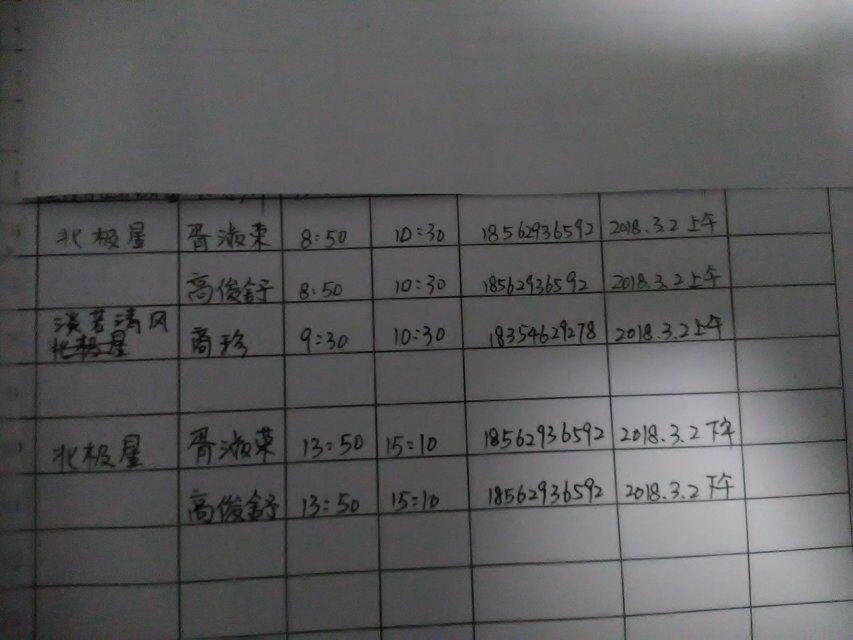 北极星 胥淑東 8:50 10:30 18562936592 2018.3.2上午
高俊舒 8:50 10:30 18562936592 2018.3.2上午
淡若清风
北极星 商珍 9:30 10:30 18354629278 2018.3.2上午
北极星 胥淑東 13:50 15:10 18562936592 2018.3.2下午
高俊舒 13:50 15:10 18562936592 2018.3.2下午